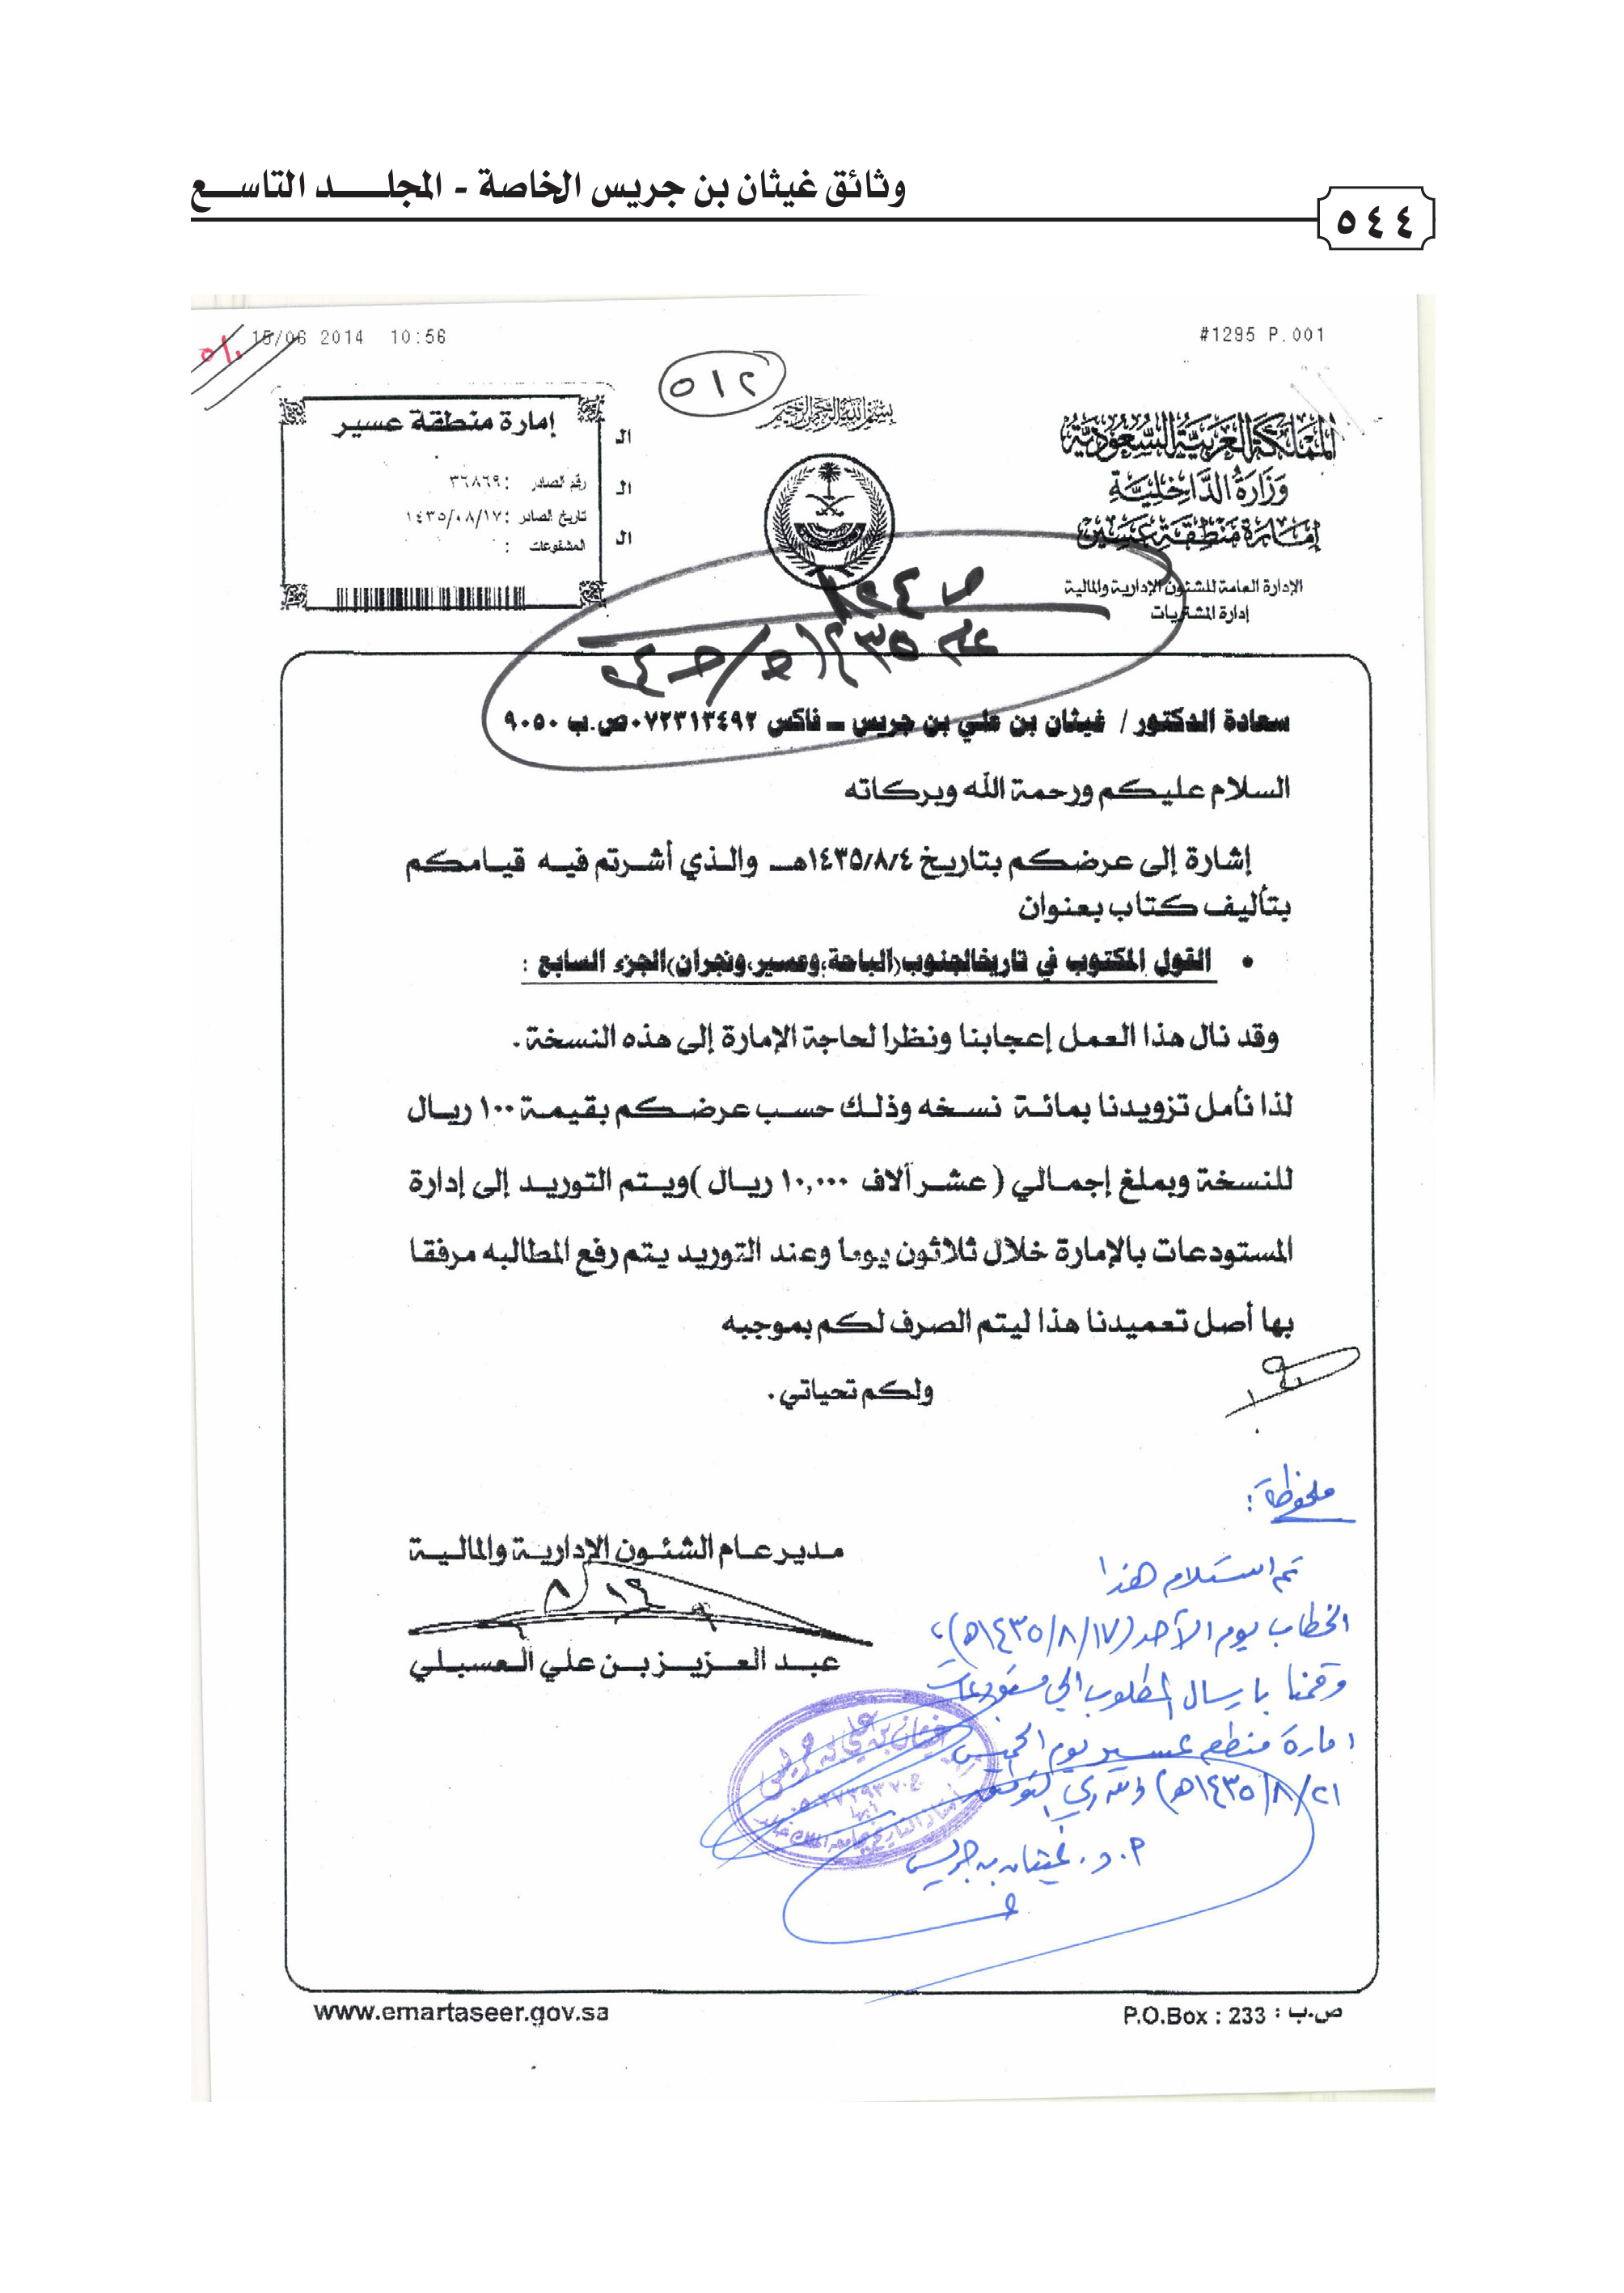 وثائق غيثان بن جريس الخاصة - المجلــــد التاســـع
٥٤٤
15/06 2014 10:56
#1295 P.001
٥١٢
بسم الله الرحمن الرحيم
المملكة العربية السعودية
وزارة الداخلية
إمارة منطقة عسير
الإدارة العامة للشئون الإدارية والمالية
إدارة المشتريات
إمارة منطقة عسير
رقم الصادر : ٣٦٨٦٩
تاريخ الصادر : ١٤٣٥/٠٨/١٧
المشفوعات :
الـ
الـ
الـ
سعادة الدكتور / غيثان بن علي بن جريس ــ فاكس ٠٧٢٣١٣٤٩٢ ص.ب ٩٠٥٠
السلام عليكم ورحمة الله وبركاته
إشارة إلى عرضكم بتاريخ ١٤٣٥/٨/٤هـ والذي أشرتم فيه قيامكم
بتأليف كتاب بعنوان
• القول المكتوب في تاريخالجنوب(الباحة،وعسير،ونجران)الجزء السابع :
وقد نال هذا العمل إعجابنا ونظرا لحاجة الإمارة إلى هذه النسخة .
لذا نأمل تزويدنا بمائة نسخه وذلك حسب عرضكم بقيمة ١٠٠ ريال
للنسخة وبملغ إجمالي ( عشر آلاف ١٠,٠٠٠ ريال )ويتم التوريد إلى إدارة
المستودعات بالإمارة خلال ثلاثون يوما وعند التوريد يتم رفع المطالبه مرفقا
بها أصل تعميدنا هذا ليتم الصرف لكم بموجبه
ولكم تحياتي .
ملحوظة :
تم استلام هذا
الخطاب يوم الأحد (١٤٣٥/٨/١٧هـ)،
وقمنا بارسال المطلوب الى مستودعات
امارة منطقة عسير يوم الخميس
٢١/٨/١٤٣٥هـ) والله ولي التوفيق
أ.د. غيثان بن جريس
مدير عام الشئون الإدارية والمالية
١٩/٨
عبد العزيز بن علي العسبلي
غيثان بن علي بن جريس
أبها
www.emartaseer.gov.sa
P.O.Box : 233 : ص.ب